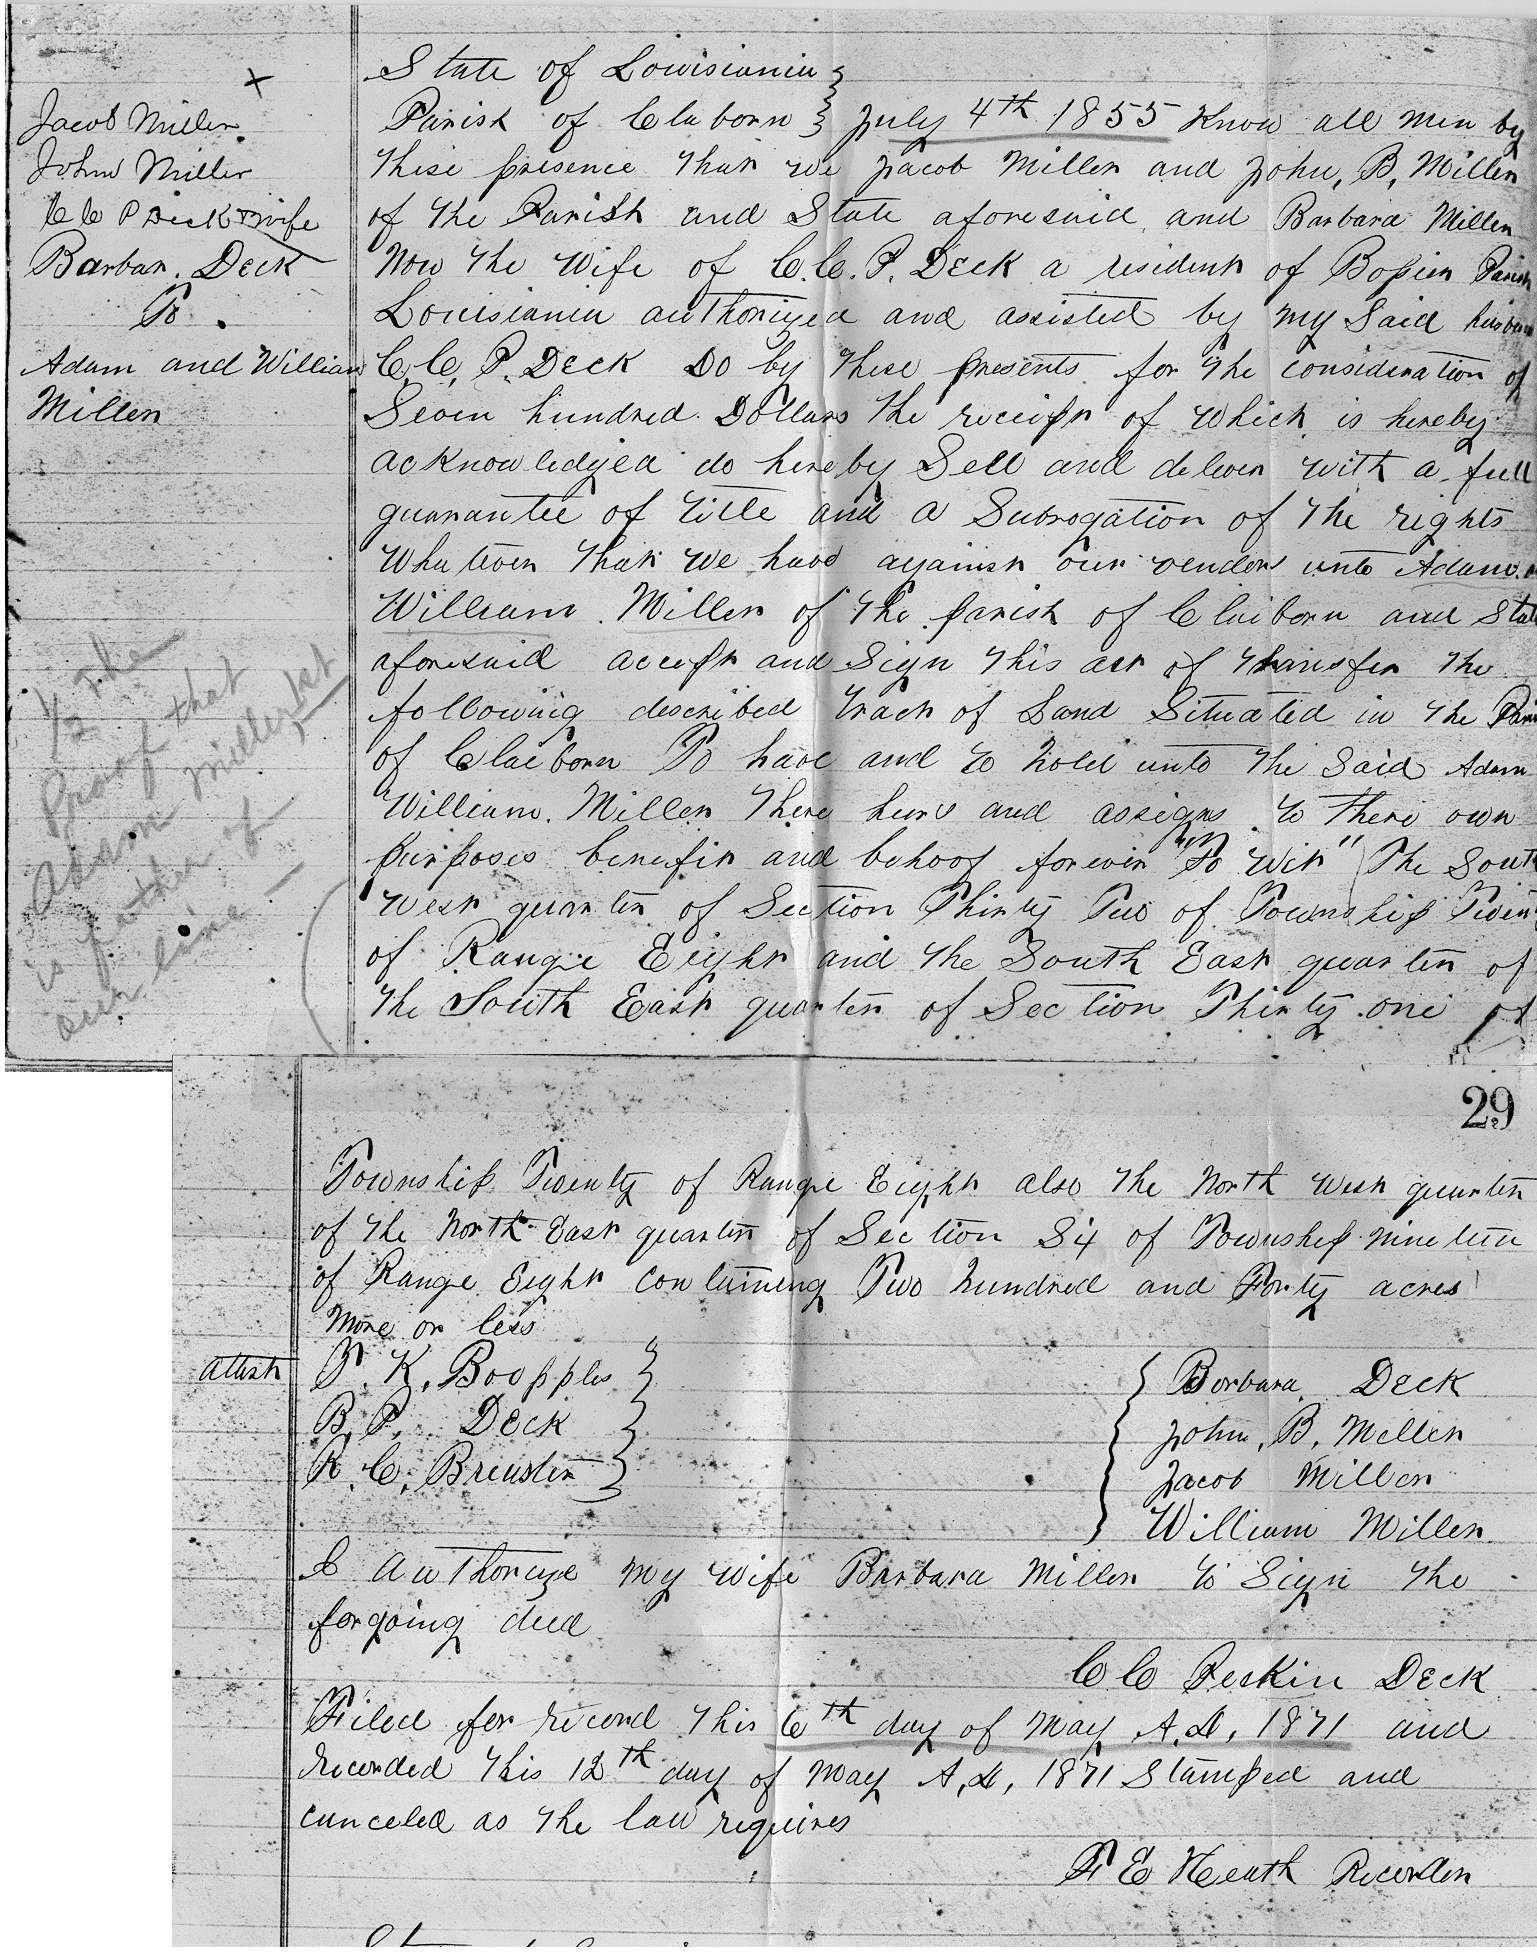 Jacob Miller
John Miller
C C P Deck & wife
Barbar. Deck
To
Adam and William
Miller
1/2 The
Proof that
Adam Miller 1st
is father of
our line
State of Louisiania
Parish of Claborn July 4th 1855 Know all men by
these presence that we Jacob Miller and John, B, Miller
of the Parish and State aforesaid, and Barbara Miller
Now the Wife of C. C. P. Deck a resident of Bossier Parish
Louisiania authorized and assisted by my Said husban
C, C, P. Deck Do by these presents for the consideration of
Seven hundred Dollars the receipt of which is hereby
acknowledged do hereby Sell and deliver with a full
guarantee of title and a Subrogation of the rights
whatever that we have against our vendors unto Adam.
William. Miller of the parish of Claiborn and State
aforesaid accept and Sign this act of transfer the
following described tract of Land Situated in the Paris
of Claiborn To have and to hold unto the Said Adam
William. Miller there heirs and assigns to there own
purposes benefit and behoof forever To Wit" The South
West quarter of Section Thirty Two of Township Twen
of Range Eight and the South East quarter of
the South East quarter of Section Thirty one of
29
Township Twenty of Range Eight also the North West quarter
of the North East quarter of Section Six of Township nineteen
of Range Eight containing Two hundred and Forty acres
More or less
Attest P. K. Boopples Borbara Deck
B. P. Deck John, B, Miller
R. C. Breuster Jacob Miller
William Miller
I Authorize my wife Barbara Miller to Sign the
forgoing deed
C C Perkin Deck
Filed for record this 6th day of May A.D, 1871 and
recorded this 12th day of May A,D, 1871 Stamped and
canceled as the law requires
F E Heath Recorder